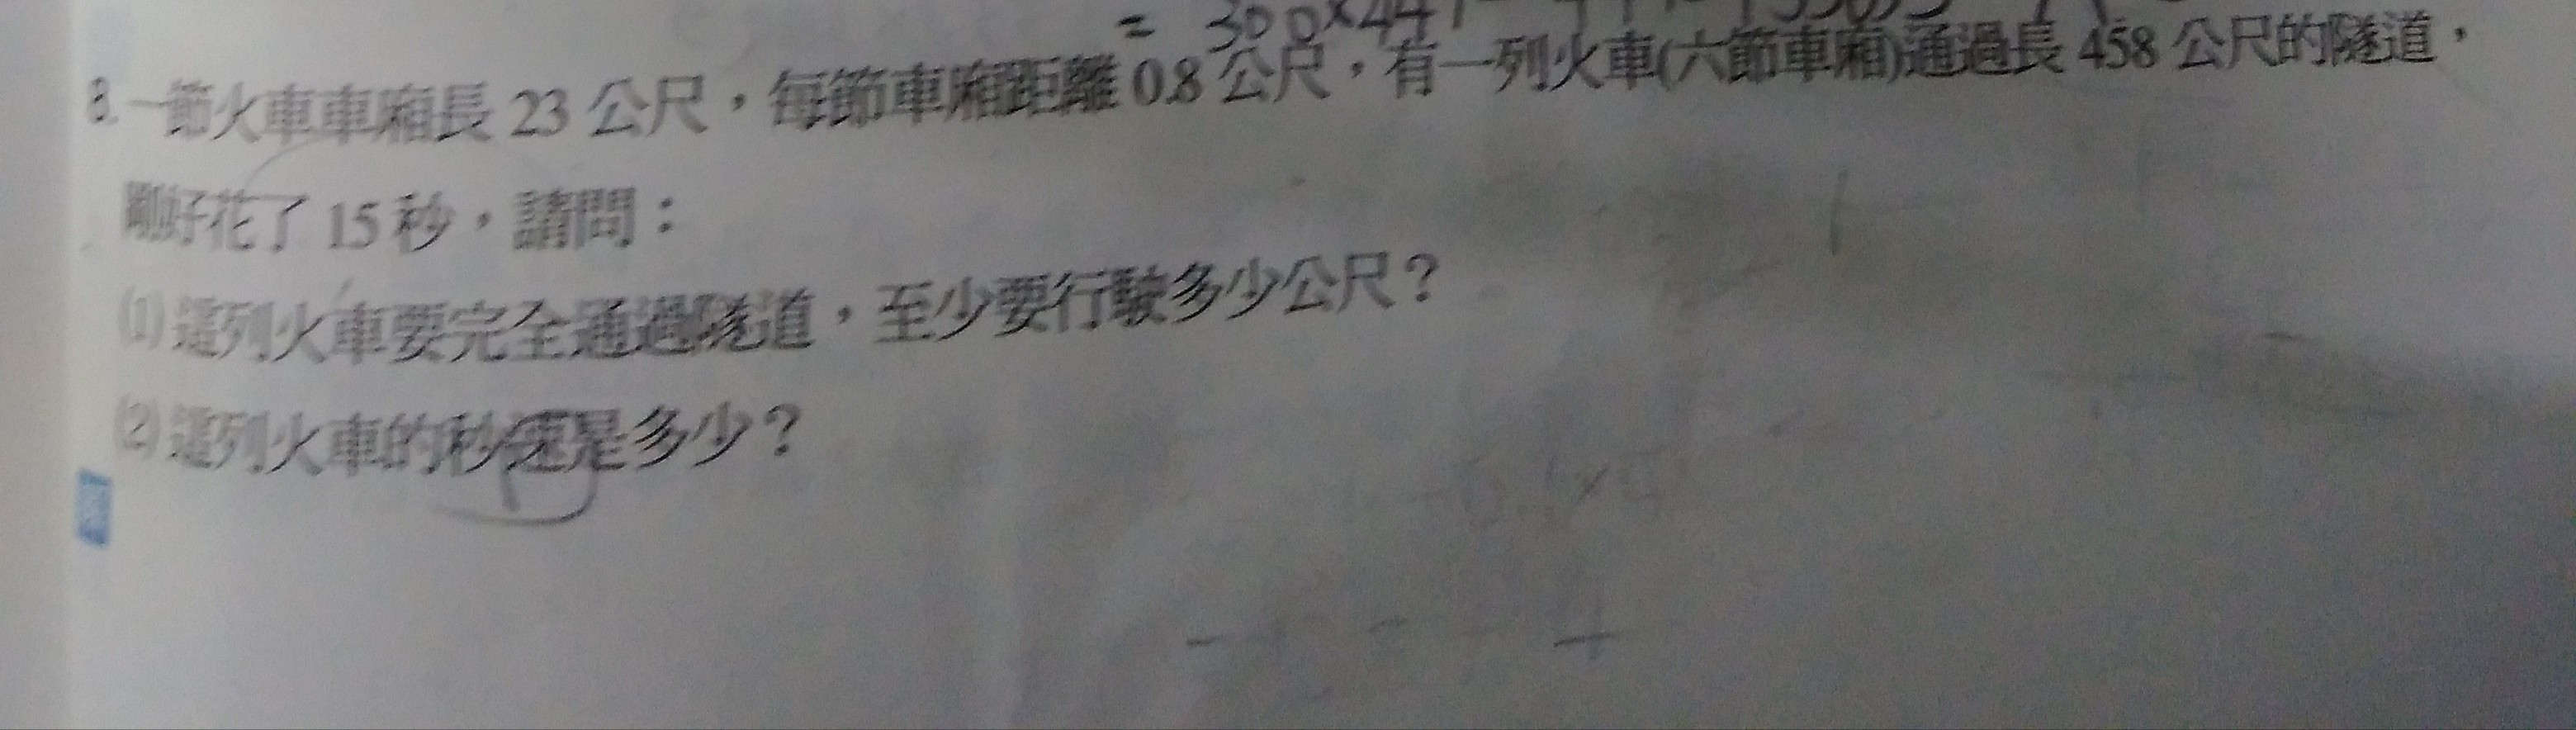 = 300×44
3. 一節火車車廂長 23 公尺，每節車廂距離 0.8 公尺，有一列火車(六節車廂)通過長 458 公尺的隧道，
剛好花了 15 秒，請問：
(1) 這列火車要完全通過隧道，至少要行駛多少公尺？
(2) 這列火車的秒速是多少？